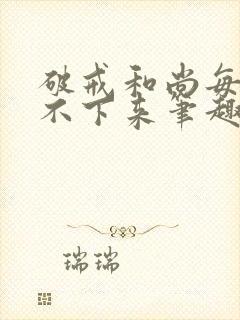 破戒和尚每
不下来笔趣
瑞瑞